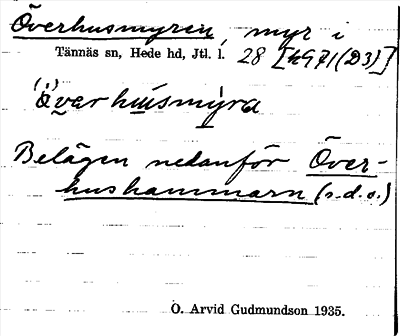 Överhusmyren, myr i
Tännäs sn, Hede hd, Jtl. l. 28 [h971(D3)]
(') överhusmyra
Belägen nedanför Över-
hushammarn (s.d.o.)
O. Arvid Gudmundson 1935.